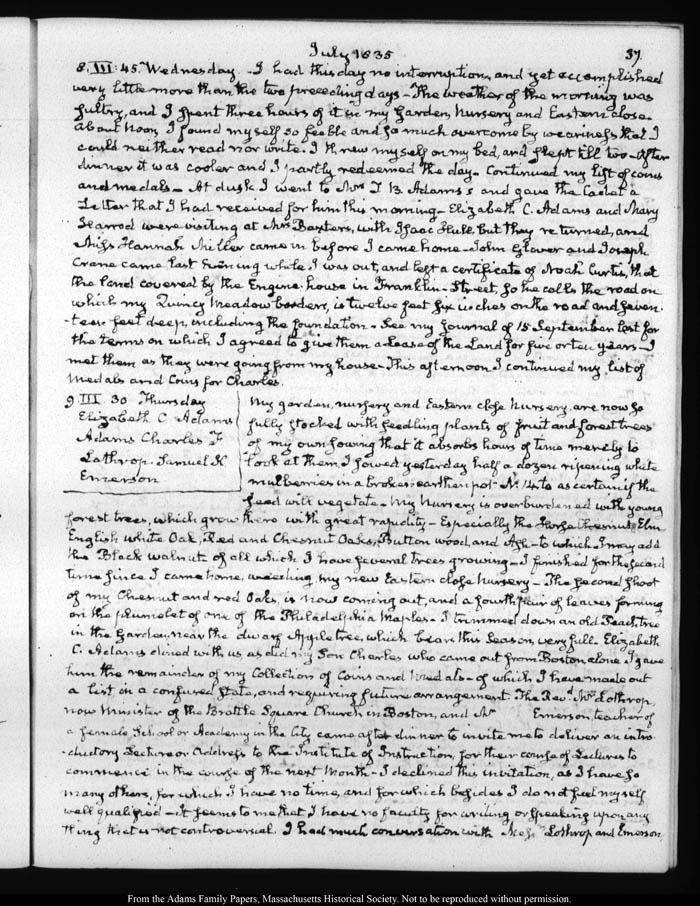 July 1835
37.
8. III: 45. Wednesday. I had this day no interruption, and yet accomplished
very little more than the two preceding days - The weather of the morning was
sultry, and I spent three hours of it in my Garden, Nursery and Eastern close.
About Noon I found myself so feeble and so much overcome by weariness that I
could neither read nor write. I threw myself on my bed, and slept till two - After
dinner it was cooler and I partly redeemed the day - Continued my list of coins
and medals - At dusk I went to Mrs T. B. Adams's and gave the Cadet a
Letter that I had received for him this morning - Elizabeth C. Adams and Mary
were visiting at Mrs Baxters, with Isaac Hull. But they returned, and
Miss Hannah Miller came in before I came home - John Glover and Joseph
Crane came last Evening while I was out, and left a certificate of Noah Curtis, that
the land covered by the Engine house in Franklin-Street, so he calls the road on
which my Quincy Meadow borders, is twelve feet six inches on the road and seven-
-teen feet deep, including the foundation - See my Journal of 15 September last for
the terms on which I agreed to give them a Lease of the Land for five or ten years - I
met them as they were going from my house - This afternoon I continued my list of
Medals and Coins for Charles.
9. III. 30 Thursday
Elizabeth C Adams
Adams Charles F
Lothrop. Samuel K
Emerson
My garden, nursery and Eastern close Nursery, are now so
fully stocked with seedling plants of fruit and forest trees
of my own sowing that it absorbs hours of time merely to
look at them. I sowed yesterday half a dozen ripening white
mulberries in a broken earthen pot N. 14 to ascertain if the
seed will vegetate - My Nursery is overburdened with young
forest trees, which grow there with great rapidity - Especially the Horse Chesnut, Elm
English white Oak, Red and Chesnut Oaks, Button wood, and Ash - to which I may add
the Black walnut of all which I have several trees growing - I finished for the second
time since I came home, weeding my new Eastern close Nursery - The second shoot
of my Chesnut and red Oaks, is now coming out, and a fourth pair of leaves forming
on the plumelet of one of the Philadelphia Maples - I trimmed down an old Peach tree
in the Garden, near the dwarf Apple tree, which bears this season very full - Elizabeth
C. Adams dined with us as did my Son Charles who came out from Boston alone. I gave
him the remainder of my Collection of Coins and Medals - of which I have made out
a list in a confused state, and requiring future arrangement. The Revd. Mr Lothrop,
now Minister of the Brattle Square Church in Boston, and Mr Emerson, teacher of
a female School or Academy in the City came after dinner to invite me to deliver an intro-
-ductory Lecture or Address to the Institute of Instruction, for their course of Lectures to
commence in the course of the next Month - I declined this invitation, as I have so
many others, for which I have no time, and for which besides I do not feel myself
well qualified - It seems to me that I have no faculty for writing or speaking upon any
thing that is not controversial. I had much conversation with Messrs Lothrop and Emerson,
From the Adams Family Papers, Massachusetts Historical Society. Not to be reproduced without permission.